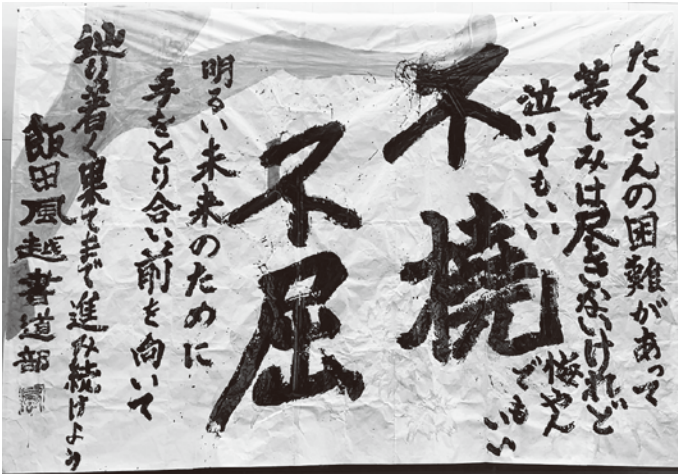 たくさんの困難があって
苦しみは尽きないけれど
泣いてもいい
悔やんでもいい
不撓
不屈
明るい未来のために
手をとり合い前を向いて
辿り着く果てまで進み続けよう
飯田風越書道部